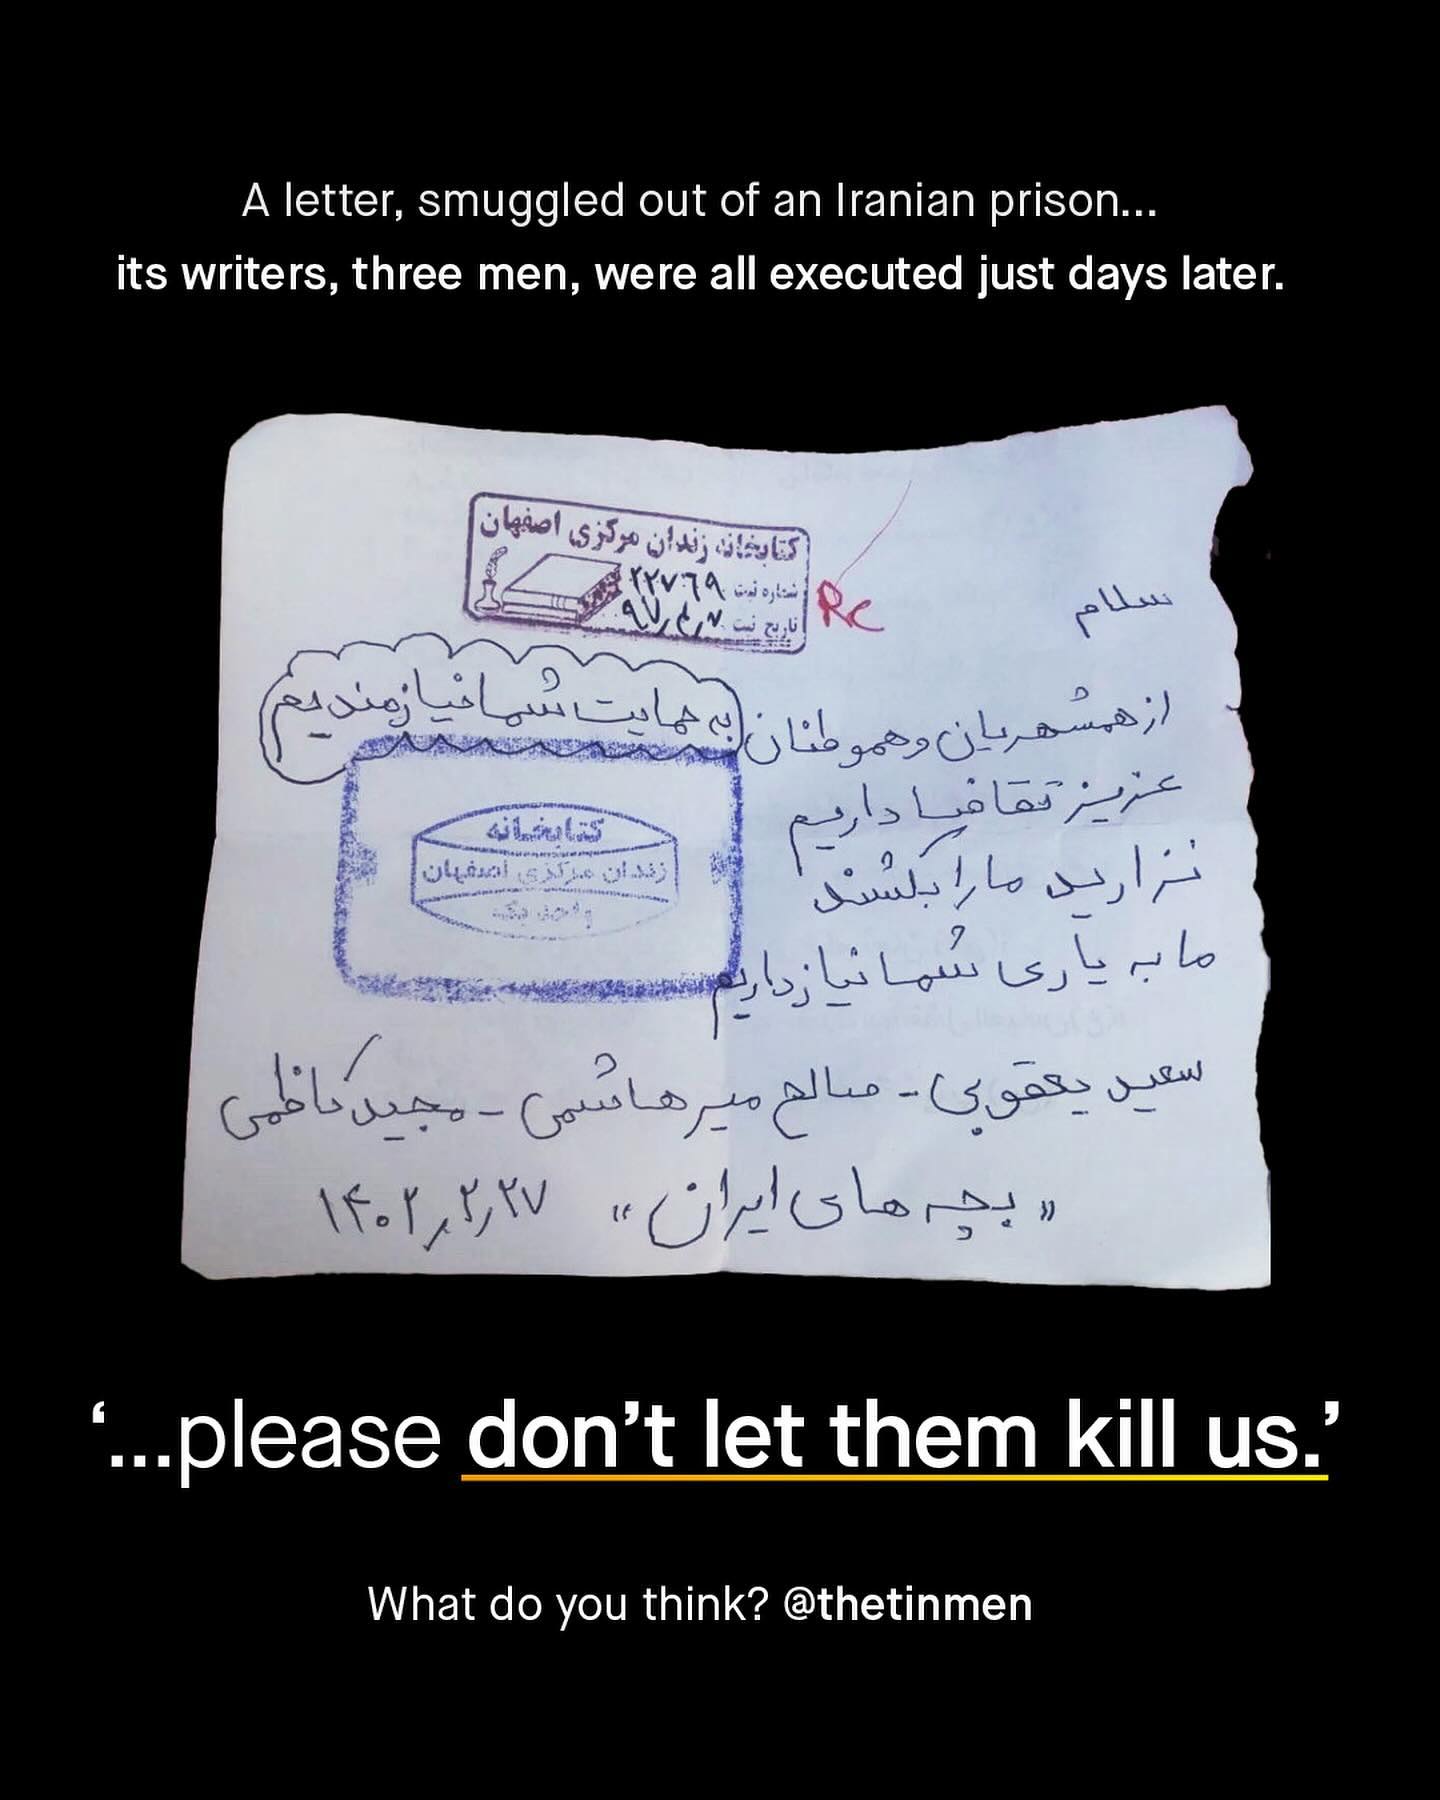 A letter, smuggled out of an Iranian prison...
its writers, three men, were all executed just days later.
کتابخانه زندان مرکزی اصفهان
شماره ثبت ۲۲۷۶۹
تاریخ ثبت
Rc
سلام
از همشهریان و هموطنان
به حمایت شما نیازمندیم
عزیز تقاضا داریم
نزارید ما را بکشند
ما به یاری شما نیاز داریم
کتابخانه
زندان مرکزی اصفهان
واحد یک
سعید یعقوبی - صالح میرهاشمی - مجید کاظمی
«بچه های ایران» ۱۴۰۲٫۲٫۲۷
‘...please don’t let them kill us.’
What do you think? @thetinmen